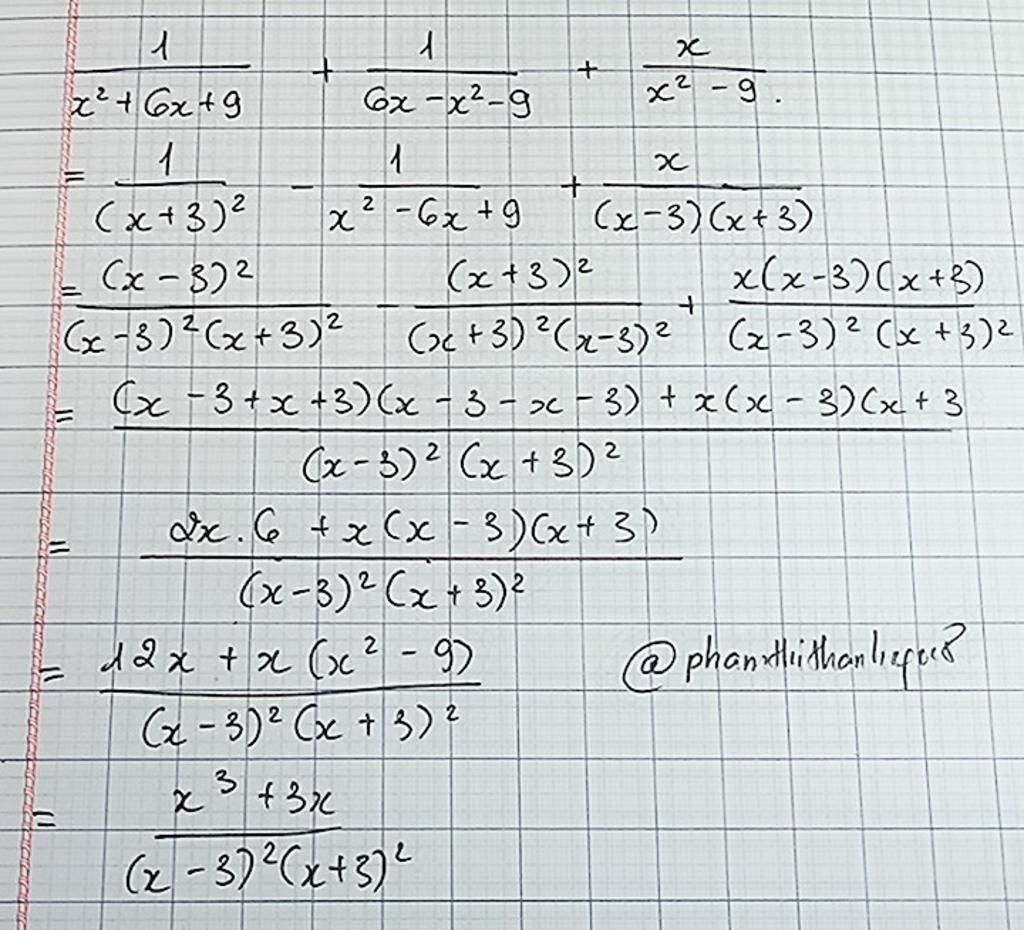 1/(x² + 6x + 9) + 1/(6x - x² - 9) + x/(x² - 9) .
= 1/(x + 3)² - 1/(x² - 6x + 9) + x/((x - 3)(x + 3))
= (x - 3)²/((x - 3)²(x + 3)²) - (x + 3)²/((x + 3)²(x - 3)²) + x(x - 3)(x + 3)/((x - 3)²(x + 3)²)
= ((x - 3 + x + 3)(x - 3 - x - 3) + x(x - 3)(x + 3)/((x - 3)²(x + 3)²)
= (2x . 6 + x(x - 3)(x + 3))/((x - 3)²(x + 3)²)
= (12x + x(x² - 9))/((x - 3)²(x + 3)²)
= (x³ + 3x)/((x - 3)²(x + 3)²)